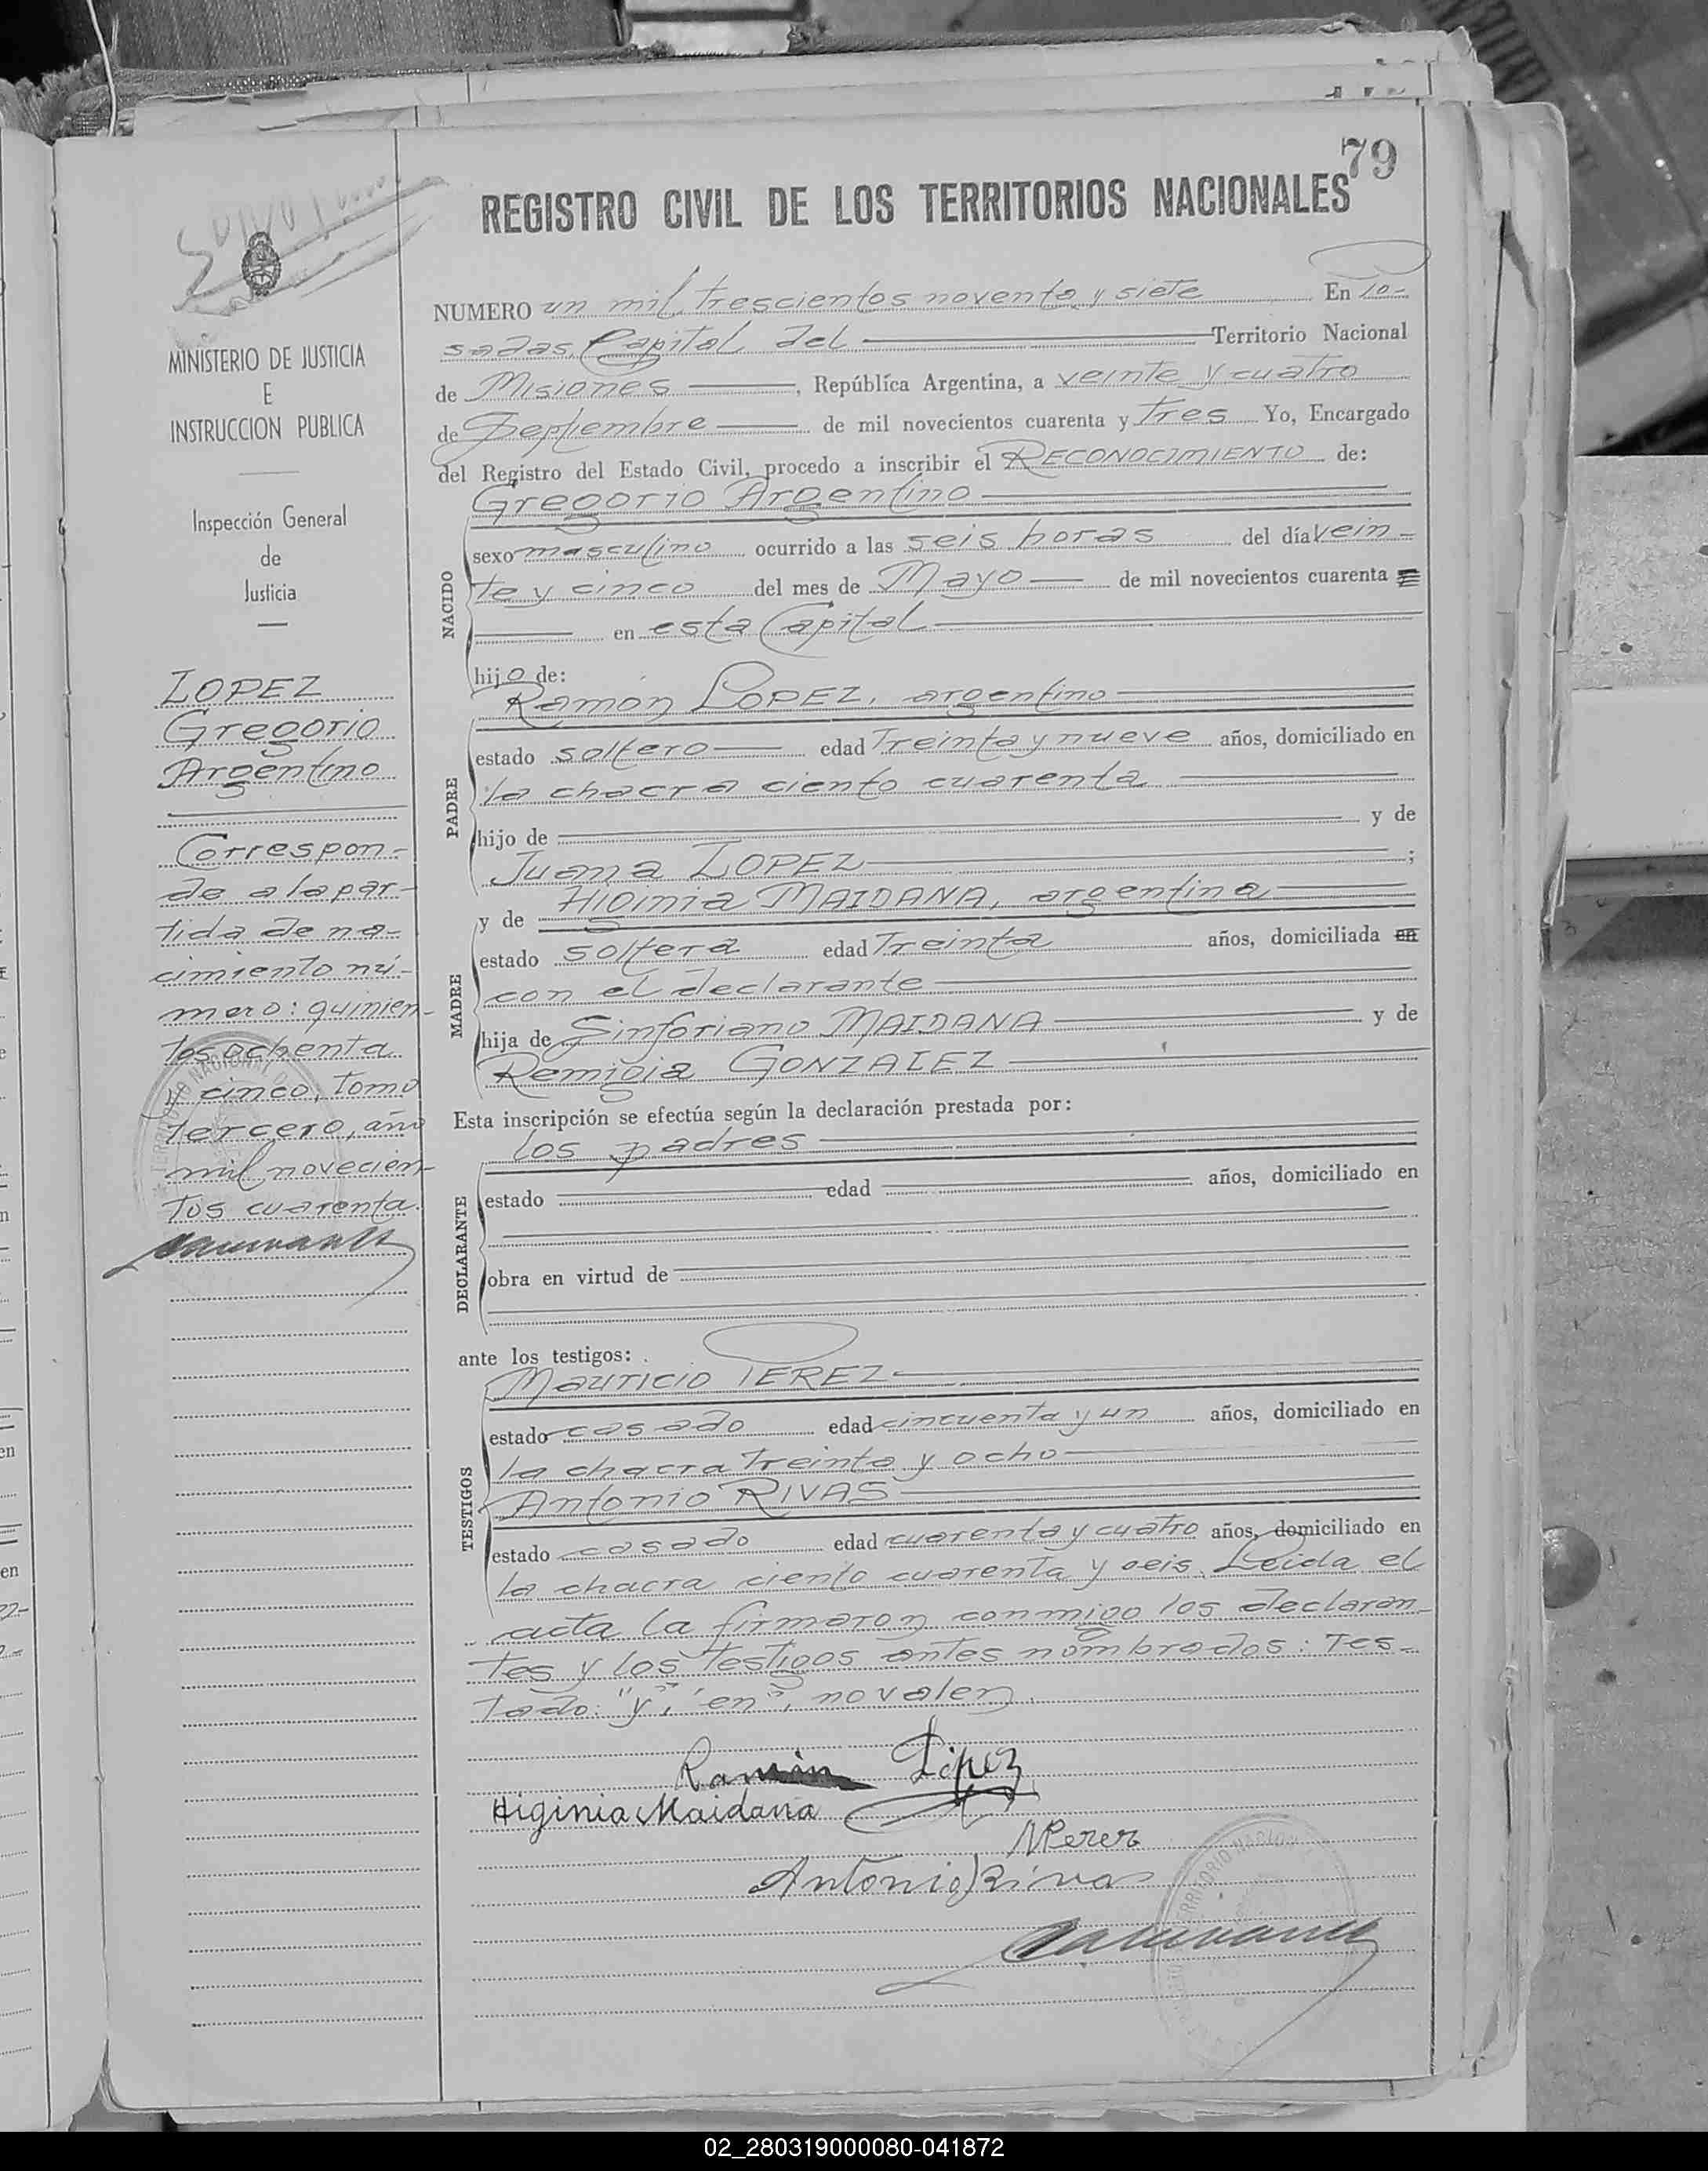 79
REGISTRO CIVIL DE LOS TERRITORIOS NACIONALES
MINISTERIO DE JUSTICIA
E
INSTRUCCION PUBLICA
Inspección General
de
Justicia
LOPEZ
Gregorio
Argentino
Correspon-
de a la par-
tida de na-
cimiento nú-
mero: quinien-
tos ochenta
y cinco, tomo
tercero, año
mil novecien-
tos cuarenta.
NUMERO un mil trescientos noventa y siete En Po-
sadas, Capital del Territorio Nacional
de Misiones, República Argentina, a veinte y cuatro
de Septiembre de mil novecientos cuarenta y tres Yo, Encargado
del Registro del Estado Civil, procedo a inscribir el RECONOCIMIENTO de:
NACIDO
Gregorio Argentino
sexo masculino ocurrido a las seis horas del día vein-
te y cinco del mes de Mayo de mil novecientos cuarenta y
en esta Capital
hijo de:
PADRE
Ramon LOPEZ, argentino
estado soltero edad treinta y nueve años, domiciliado en
la chacra ciento cuarenta
hijo de y de
Juana LOPEZ ;
MADRE
y de Higinia MAIDANA, argentina
estado soltera edad treinta años, domiciliada en
con el declarante
hija de Sinforiano MAIDANA y de
Remigia GONZALEZ
Esta inscripción se efectúa según la declaración prestada por:
DECLARANTE
los padres
estado edad años, domiciliado en
obra en virtud de
ante los testigos:
TESTIGOS
Mauricio PEREZ
estado casado edad cincuenta y un años, domiciliado en
la chacra treinta y ocho
Antonio RIVAS
estado casado edad cuarenta y cuatro años, domiciliado en
la chacra ciento cuarenta y seis. Leida el
acta la firmaron conmigo los declaran-
tes y los testigos antes nombrados: Tes-
tado: "y", "en", no valen.
Ramón López
Higinia Maidana
MPerez
Antonio Rivas
TERRITORIO NACIONAL
02_280319000080-041872